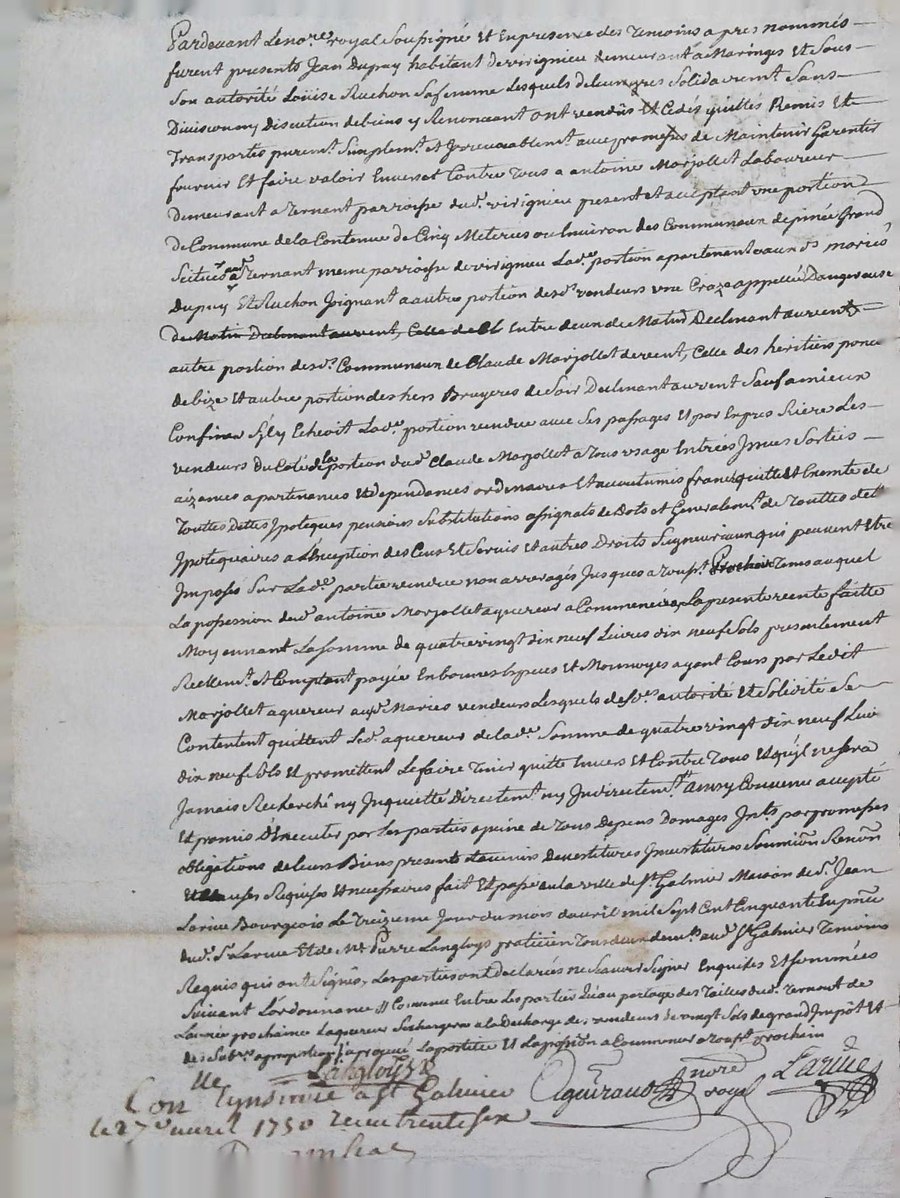 Pardevant Lenore royal Soussigné Et Enpresence des Temoins apres nommés
furent presents Jean Dupuy habitant de virignieu demeurant a Maringes Et Sous
Son autorité Loüise Ruchon Safemme Lesquels deleurs gres Solidairemt Sans
Division ny Discution debiens y Renonceant ont vendus Et Cedés quittés Remis Et
Transportés puremt Simplemt Et Irrevocablemt avec promesses de Maintenir Garentir
fournir Et faire valoir Envers et Contre Tous a antoine Marjollet Laboureur
Demeurant a Ternant parroisse dud. virignieu present et acceptant une portion
de Commune de la Contenue de Cinq Meterées ou Environ des Communaux de pinée Grand
Scitués a Ternant meme parroisse de virignieu Lade portion apartenant auxds mariés
Dupuy Et Ruchon Joignant a autre portion desds vendeurs une Croze appellée Dangereuse
de Matin Declinant auvent, Celle de Cl Entre deux de Matin Declinant auvent
autre portion desd. Communaux de Claude Marjollet devent, Celle des héritiers ponce
debize Et autre portion des hers Bruyeres de Soir Declinant auvent Sauf amieux
Confiner Sy ly Echeoit Lade portion vendue avec Ses passages Et par Enpres Riere Les
vendeurs du Coté de la portion dud. Claude Marjollet a Tous usage Entrées Issues Sorties
aizances apartenances Et dependances ordinaires Et accoutumés franc quitte Et Exemte de
Touttes Dettes Ipoteques pensions Substitutions assignats de Dots Et Generalemt de Touttes dettes
Ipotequaires a L'Exception des Cens Et Servis Et autres Droits Seigneuriaux qui peuvent Etre
Imposés Sur Lade partie vendue non arreragés Jusques a Prochain Tems auquel
La possession dud. antoine Marjollet aquereur a Commencée, La presente vente faitte
Moyennant La Somme de quatre vingt dix neuf Livres dix neuf Sols presentement
Reellemt Et Comptant payée En bonnes Especes Et Monnoyes ayant Cours par Ledit
Marjollet aquereur auxds Mariés vendeurs Lesquels desdes autorité Et Solidité Se
Contentent quittent Led. aquereur de lade Somme de quatre vingt dix neuf Livres
dix neuf Sols Et promettent Le faire Tenir quitte Envers Et Contre Tous Et qu'jl ne Sera
Jamais Recherché ny Inquietté Directemt ny Indirectemt ainsy Convenu accepté
Et promis D'Executer par Les parties a peine de Tous Depens Domages Ints par promesses
obligations de leurs Biens presents Et avenir devestitures Investitures Soumion Renon
Et Clauses Requises Et necessaires fait Et passé en la ville de St Galmier Maison de Sr Jean
Larüe Bourgeois Le Treizieme Jour du mois d'avril mil Sept Cent Cinquante En presence
dud. Sr Larue Et de Me Pierre Langloys praticien Tous deux demts aud. St Galmier Temoins
Requis qui ont Signés, Les parties ont déclarées ne Scavoir Signer Enquises Et Sommées
Suivant L'ordonnance Convenu Entre Les parties qu'au partage des Tailles dud. Ternant de
L'année prochaine Laquereur Sechargera a la decharge des vendeurs de vingt Sols de grand Impôt Et
des Subres a proportion La portée Et La possession a Commencer prochain
Langloys Larüe
aguiraud Nore royal
Con a St Galmier
le 27e avril 1750 Recu trente six